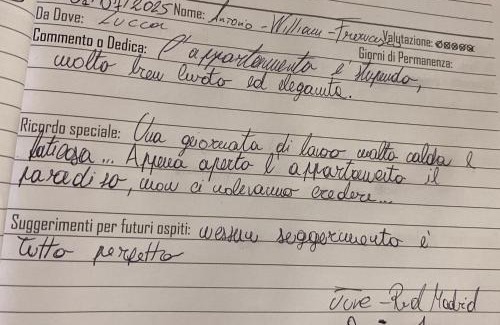 07/2025 Nome: Antonio - William - Francesco
Da Dove: Lucca Valutazione:
Commento o Dedica: L'appartamento è stupendo, Giorni di Permanenza:
molto ben curato ed elegante.
Ricordo speciale: Una giornata di lavoro molto calda e
faticosa... Appena aperto l'appartamento il
paradiso, non ci volevamo credere...
Suggerimenti per futuri ospiti: nessun seggerimento è
tutto perfetto
Juve - Real Madrid